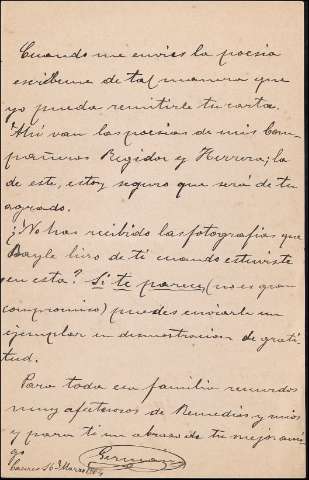 Cuando me envies la poesia
escribeme de tal manera que
yo pueda remitirle tu carta.
Ahí van las poesias de mis Com-
pañeros Regidor y Herrera; la
de este, estoy seguro que será de tu
agrado.
¿No has recibido las fotografias que
Bayle hizo de ti cuando estuviste
en esta? Si te parece (no es gran
compromiso) puedes enviarle un
ejemplar en demostracion de grati-
tud.
Para toda esa familia recuerdos
muy afectuosos de Remedios y mios
y para ti un abrazo de tu mejor ami-
go
German
Caceres 16 Marzo